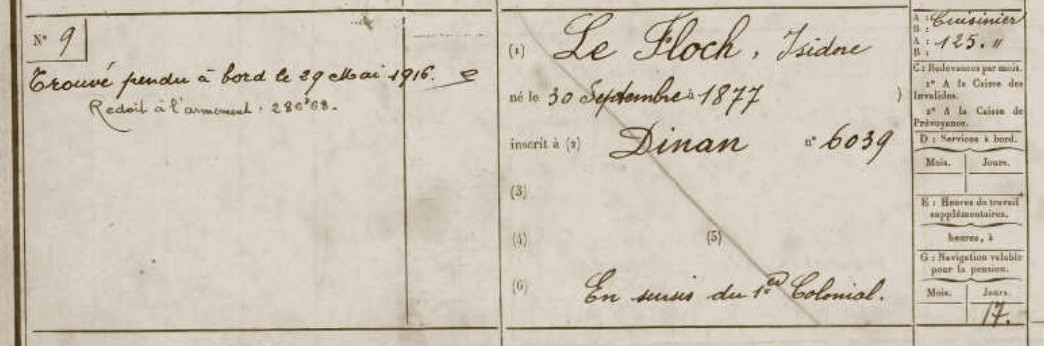 N° 9
Trouvé pendu à bord le 29 Mai 1916.
Redoit à l'armement : 286f68.
(1) Le Floch, Isidore
né le 30 Septembre à 1877 )
inscrit à (2) Dinan n° 6039
(3)
(4) (5)
(6) En sursis du 1er Colonial.
A : Cuisinier
B :
A : 125. "
B :
C : Redevances par mois.
1° A la Caisse des
Invalides.
2° A la Caisse de
Prévoyance.
D : Services à bord.
Mois. Jours.
E : Heures de travail
supplémentaires.
heures, à
G : Navigation valable
pour la pension.
Mois. Jours.
17.